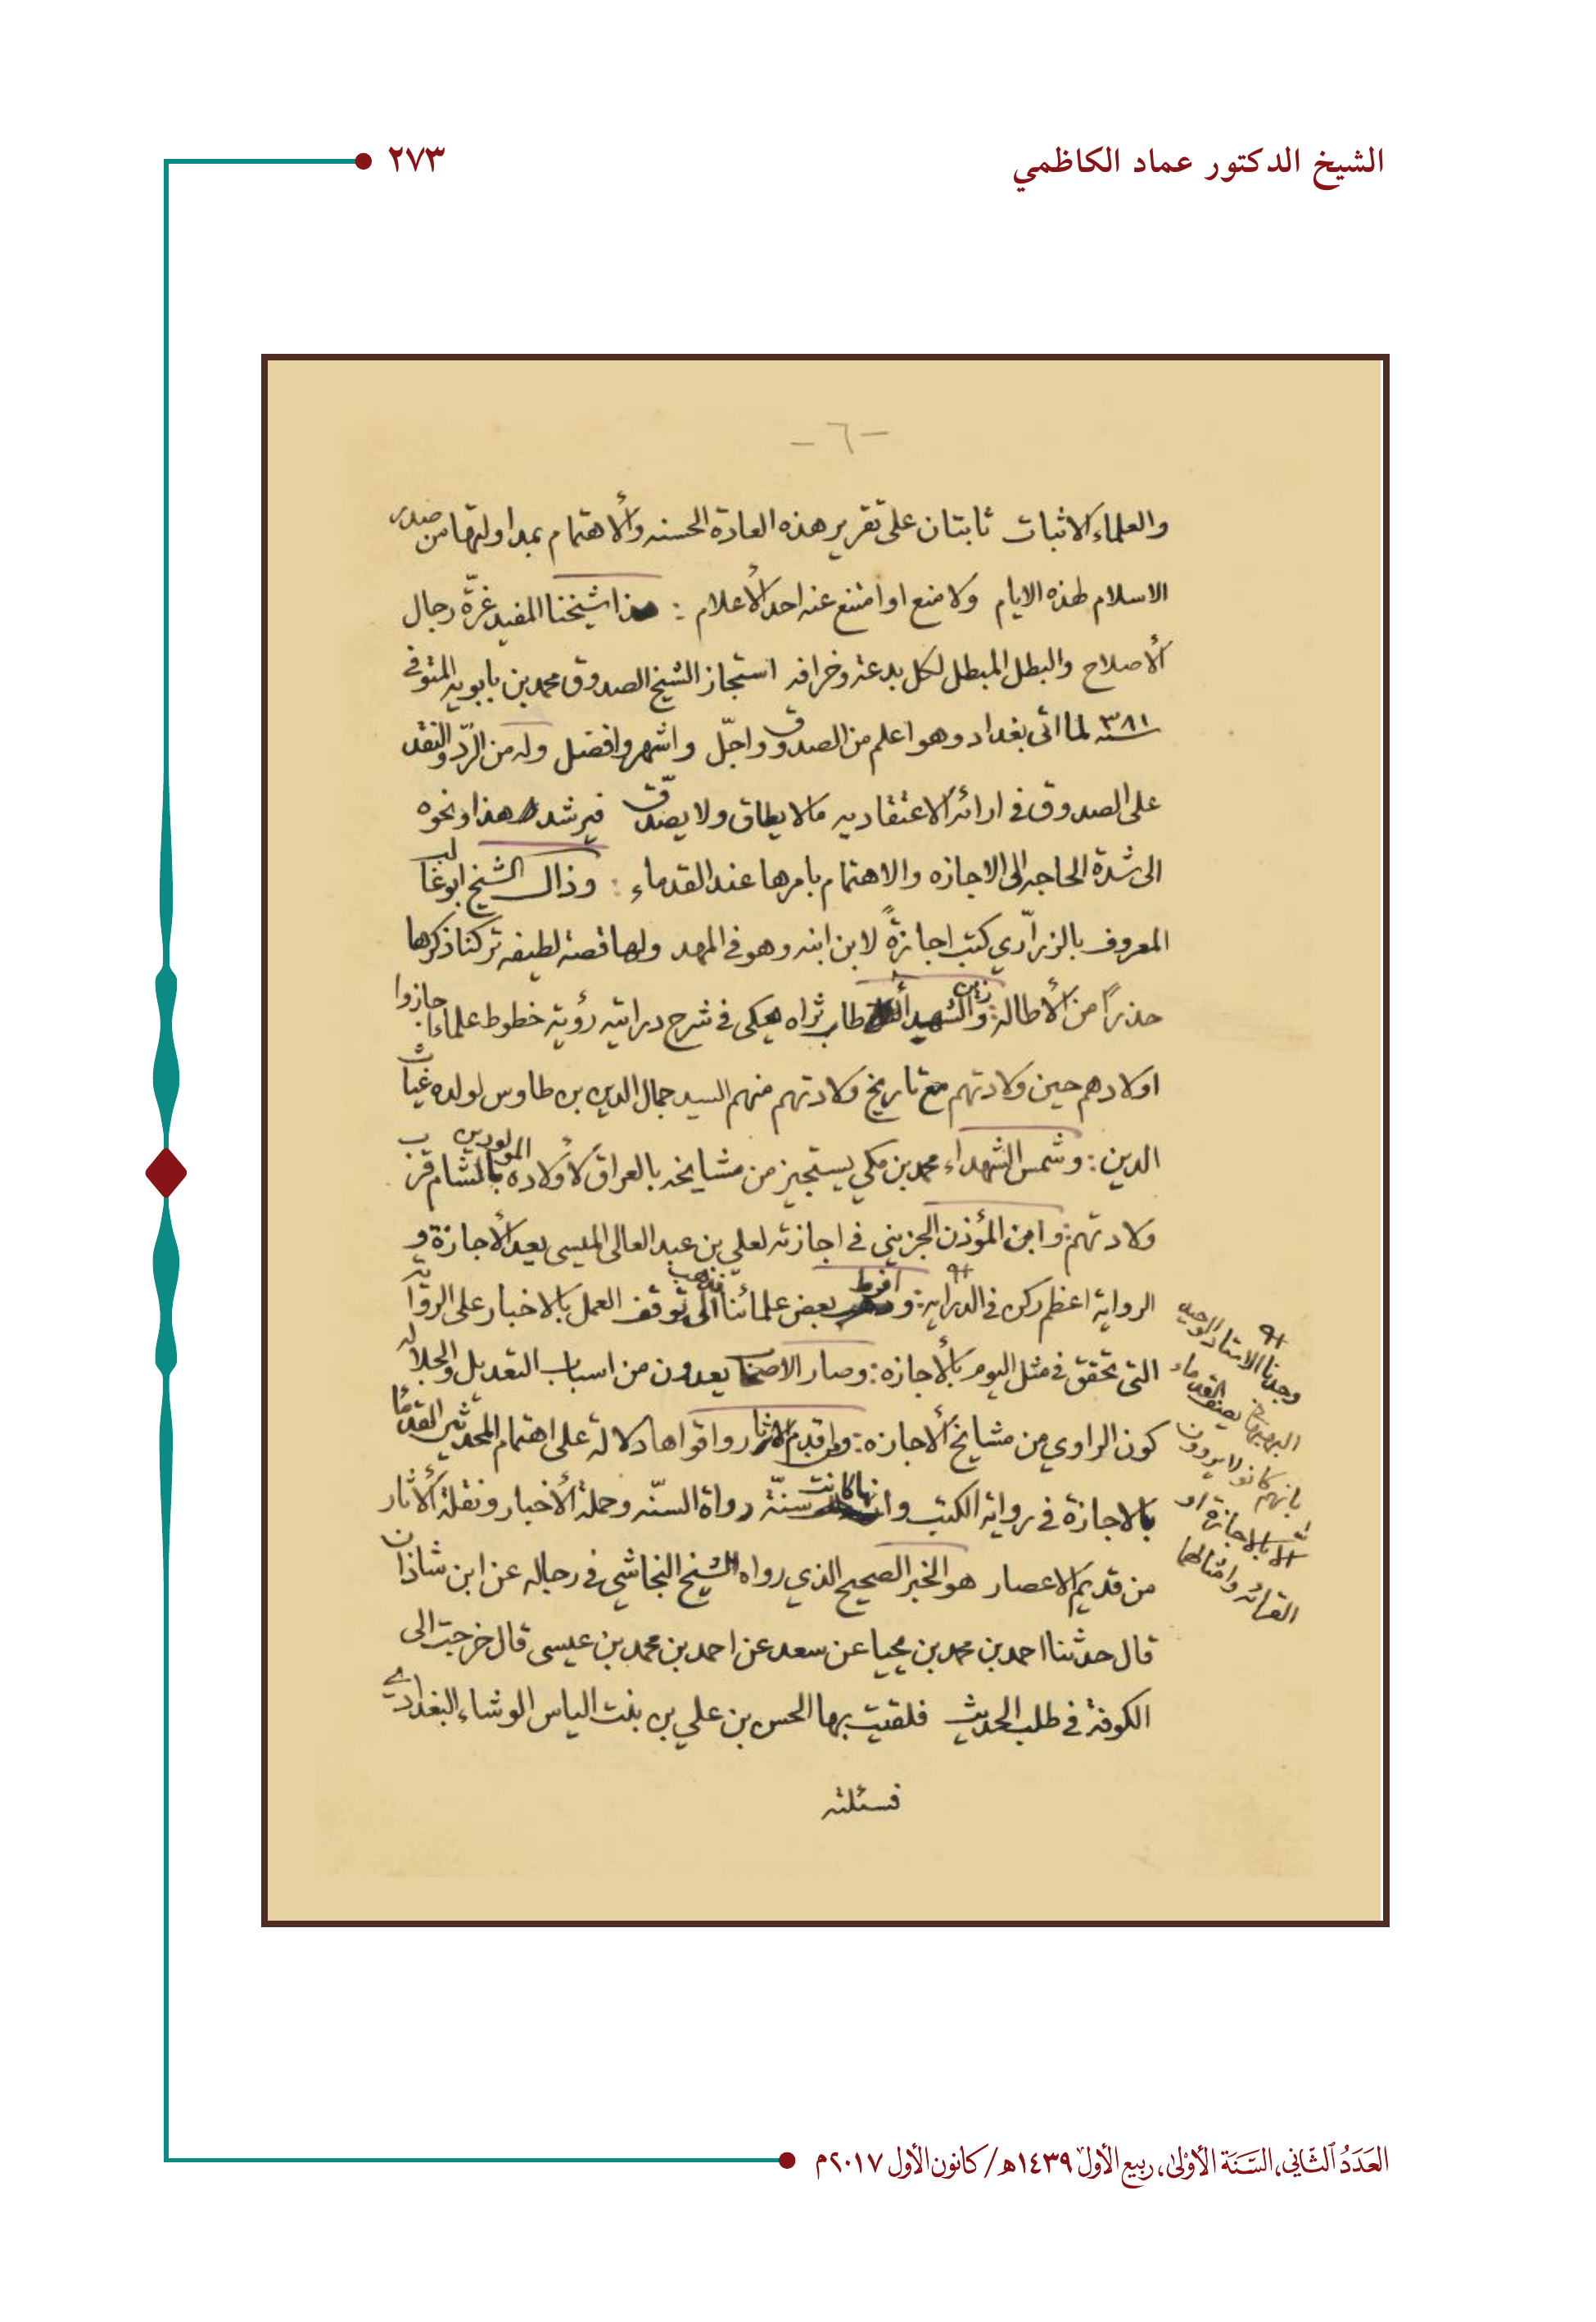 الشيخ الدكتور عماد الكاظمي
٢٧٣
- ٦ -
والعلماء الاثبات ثابتان على تقرير هذه العادة الحسنه والأهتمام بمداولتها من صدر
الاسلام لهذه الايام ولا منع او امتنع عنه احد الأعلام : هذا شيخنا المفيد غرّة رجال
الأصلاح والبطل المبطل لكل بدعة وخرافه استجاز الشيخ الصدوق محمد بن بابويه المتوفى
سنه ٣٨١ لما اتى بغداد وهو اعلم من الصدوق واجلّ واشهر وافضل وله من الرّد والنقد
على الصدوق في ارائه الاعتقاديه مالا يطاق ولا يصدّق فيرشد هذا ونحوه
الى شدة الحاجه الى الاجازه والاهتمام بامرها عند القدماء : وذاك الشيخ ابو غالب
المعروف بالزرّاري كتب اجازةً لابن ابنه وهو في المهد ولها قصة لطيفه تركنا ذكرها
حذرًا من الأطاله : وزين الشهيد طاب ثراه يحكى في شرح درايته رؤية خطوط علماء اجازوا
اولادهم حين ولادتهم مع تاريخ ولادتهم منهم السيد جمال الدين بن طاوس لولده غياث
الدين : وشمس الشهداء محمد بن مكي يستجيز من مشايخه بالعراق لأولاده المولودين بالشام قرب
ولادتهم : وابن المؤذن الجزيني في اجازته لعلي بن عبد العالى الميسى يعد الأجازة و
الرواية اعظم ركن في الدرايه : وافرط بعض علمائنا فذهب الى توقف العمل بالاخبار على الرواية
التى تحقق في مثل اليوم بالأجازه : وصار الاصحاب يعدون من اسباب التعديل والجلاله
كون الراوي من مشايخ الأجازه : ومن اقدم الاثار واقواها دلالة على اهتمام المحدثين القدماء
بالاجازة في رواية الكتب وانها كانت سنّة رواة السنّه وحملة الأخبار ونقلة الأثار
من قديم الاعصار هو الخبر الصحيح الذي رواه الشيخ النجاشي في رجاله عن ابن شاذان
قال حدثنا احمد بن محمد بن يحيا عن سعد عن احمد بن محمد بن عيسى قال خرجت الى
الكوفة في طلب الحديث فلقيت بها الحسن بن علي بن بنت الياس الوشاء البغدادي
فسئلته
وجدنا الاستاد الوحيد
البهبهاني يصف القدماء
بانهم كانوا لا يروون
الا بالاجازة او
القرائه وامثالها
العَدَدُ الثّاني، السَّنَة الأوْلىٰ، ربيع الأول ١٤٣٩هـ / كانون الأول ٢٠١٧م